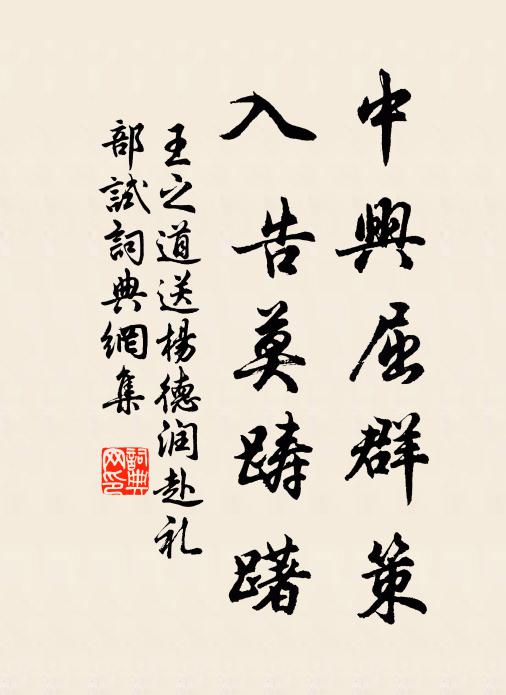 中興屈群策
入告莫踌躇
王之道送楊德润赴礼
部試詞典網集
詞典网印